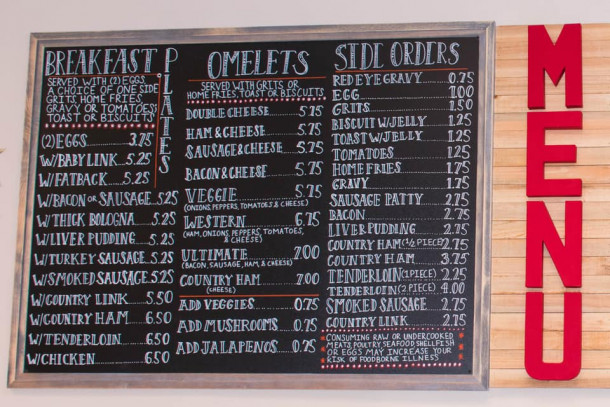 BREAKFAST PLATES
SERVED WITH (2) EGGS
A CHOICE OF ONE SIDE
GRITS, HOME FRIES,
GRAVY OR TOMATOES;
TOAST OR BISCUITS
(2) EGGS 3.75
W/BABY LINK 5.25
W/FATBACK 5.25
W/BACON OR SAUSAGE 5.25
W/THICK BOLOGNA 5.25
W/LIVER PUDDING 5.25
W/TURKEY SAUSAGE 5.25
W/SMOKED SAUSAGE 5.25
W/COUNTRY LINK 5.50
W/COUNTRY HAM 6.50
W/TENDERLOIN 6.50
W/CHICKEN 6.50
OMELETS
SERVED WITH GRITS OR
HOME FRIES, TOAST OR BISCUITS
DOUBLE CHEESE 5.75
HAM & CHEESE 5.75
SAUSAGE & CHEESE 5.75
BACON & CHEESE 5.75
VEGGIE 5.75
(ONIONS, PEPPERS, TOMATOES & CHEESE)
WESTERN 6.75
(HAM, ONIONS, PEPPERS, TOMATOES,
& CHEESE)
ULTIMATE 7.00
(BACON, SAUSAGE, HAM, & CHEESE)
COUNTRY HAM 7.00
(CHEESE)
ADD VEGGIES 0.75
ADD MUSHROOMS 0.75
ADD JALAPENOS 0.75
SIDE ORDERS
RED EYE GRAVY 0.75
EGG 1.00
GRITS 1.50
BISCUIT W/JELLY 1.25
TOAST W/JELLY 1.25
TOMATOES 1.25
HOME FRIES 1.75
GRAVY 1.75
SAUSAGE PATTY 2.75
BACON 2.75
LIVER PUDDING 2.75
COUNTRY HAM (1/2 PIECE) 2.75
COUNTRY HAM 3.75
TENDERLOIN (1 PIECE) 2.25
TENDERLOIN (2 PIECE) 4.00
SMOKED SAUSAGE 2.75
COUNTRY LINK 2.75
CONSUMING RAW OR UNDERCOOKED
MEATS, POULTRY, SEAFOOD, SHELLFISH
OR EGGS MAY INCREASE YOUR
RISK OF FOODBORNE ILLNESS
MENU